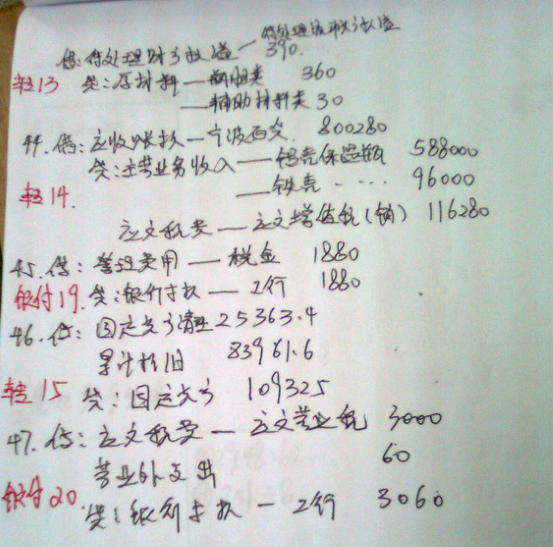 待处理流动资产损溢
借:待处理财产损溢— 390.
转13 贷:原材料—瓶胆类 360
—辅助材料类 30
44.借:应收账款—宁波百交 800280
贷:主营业务收入—铝壳保温瓶 588000
转14. —铁壳‥‥ 96000
应交税费—应交增值税(销) 116280
45.借:管理费用—税金 1880
银付19.贷:银行存款—工行 1880
46.借:固定资产清理25363.4
累计折旧 83961.6
转15 贷:固定资产 109325
47.借:应交税费—应交营业税 3000
营业外支出 60
银付20 贷:银行存款—工行 3060